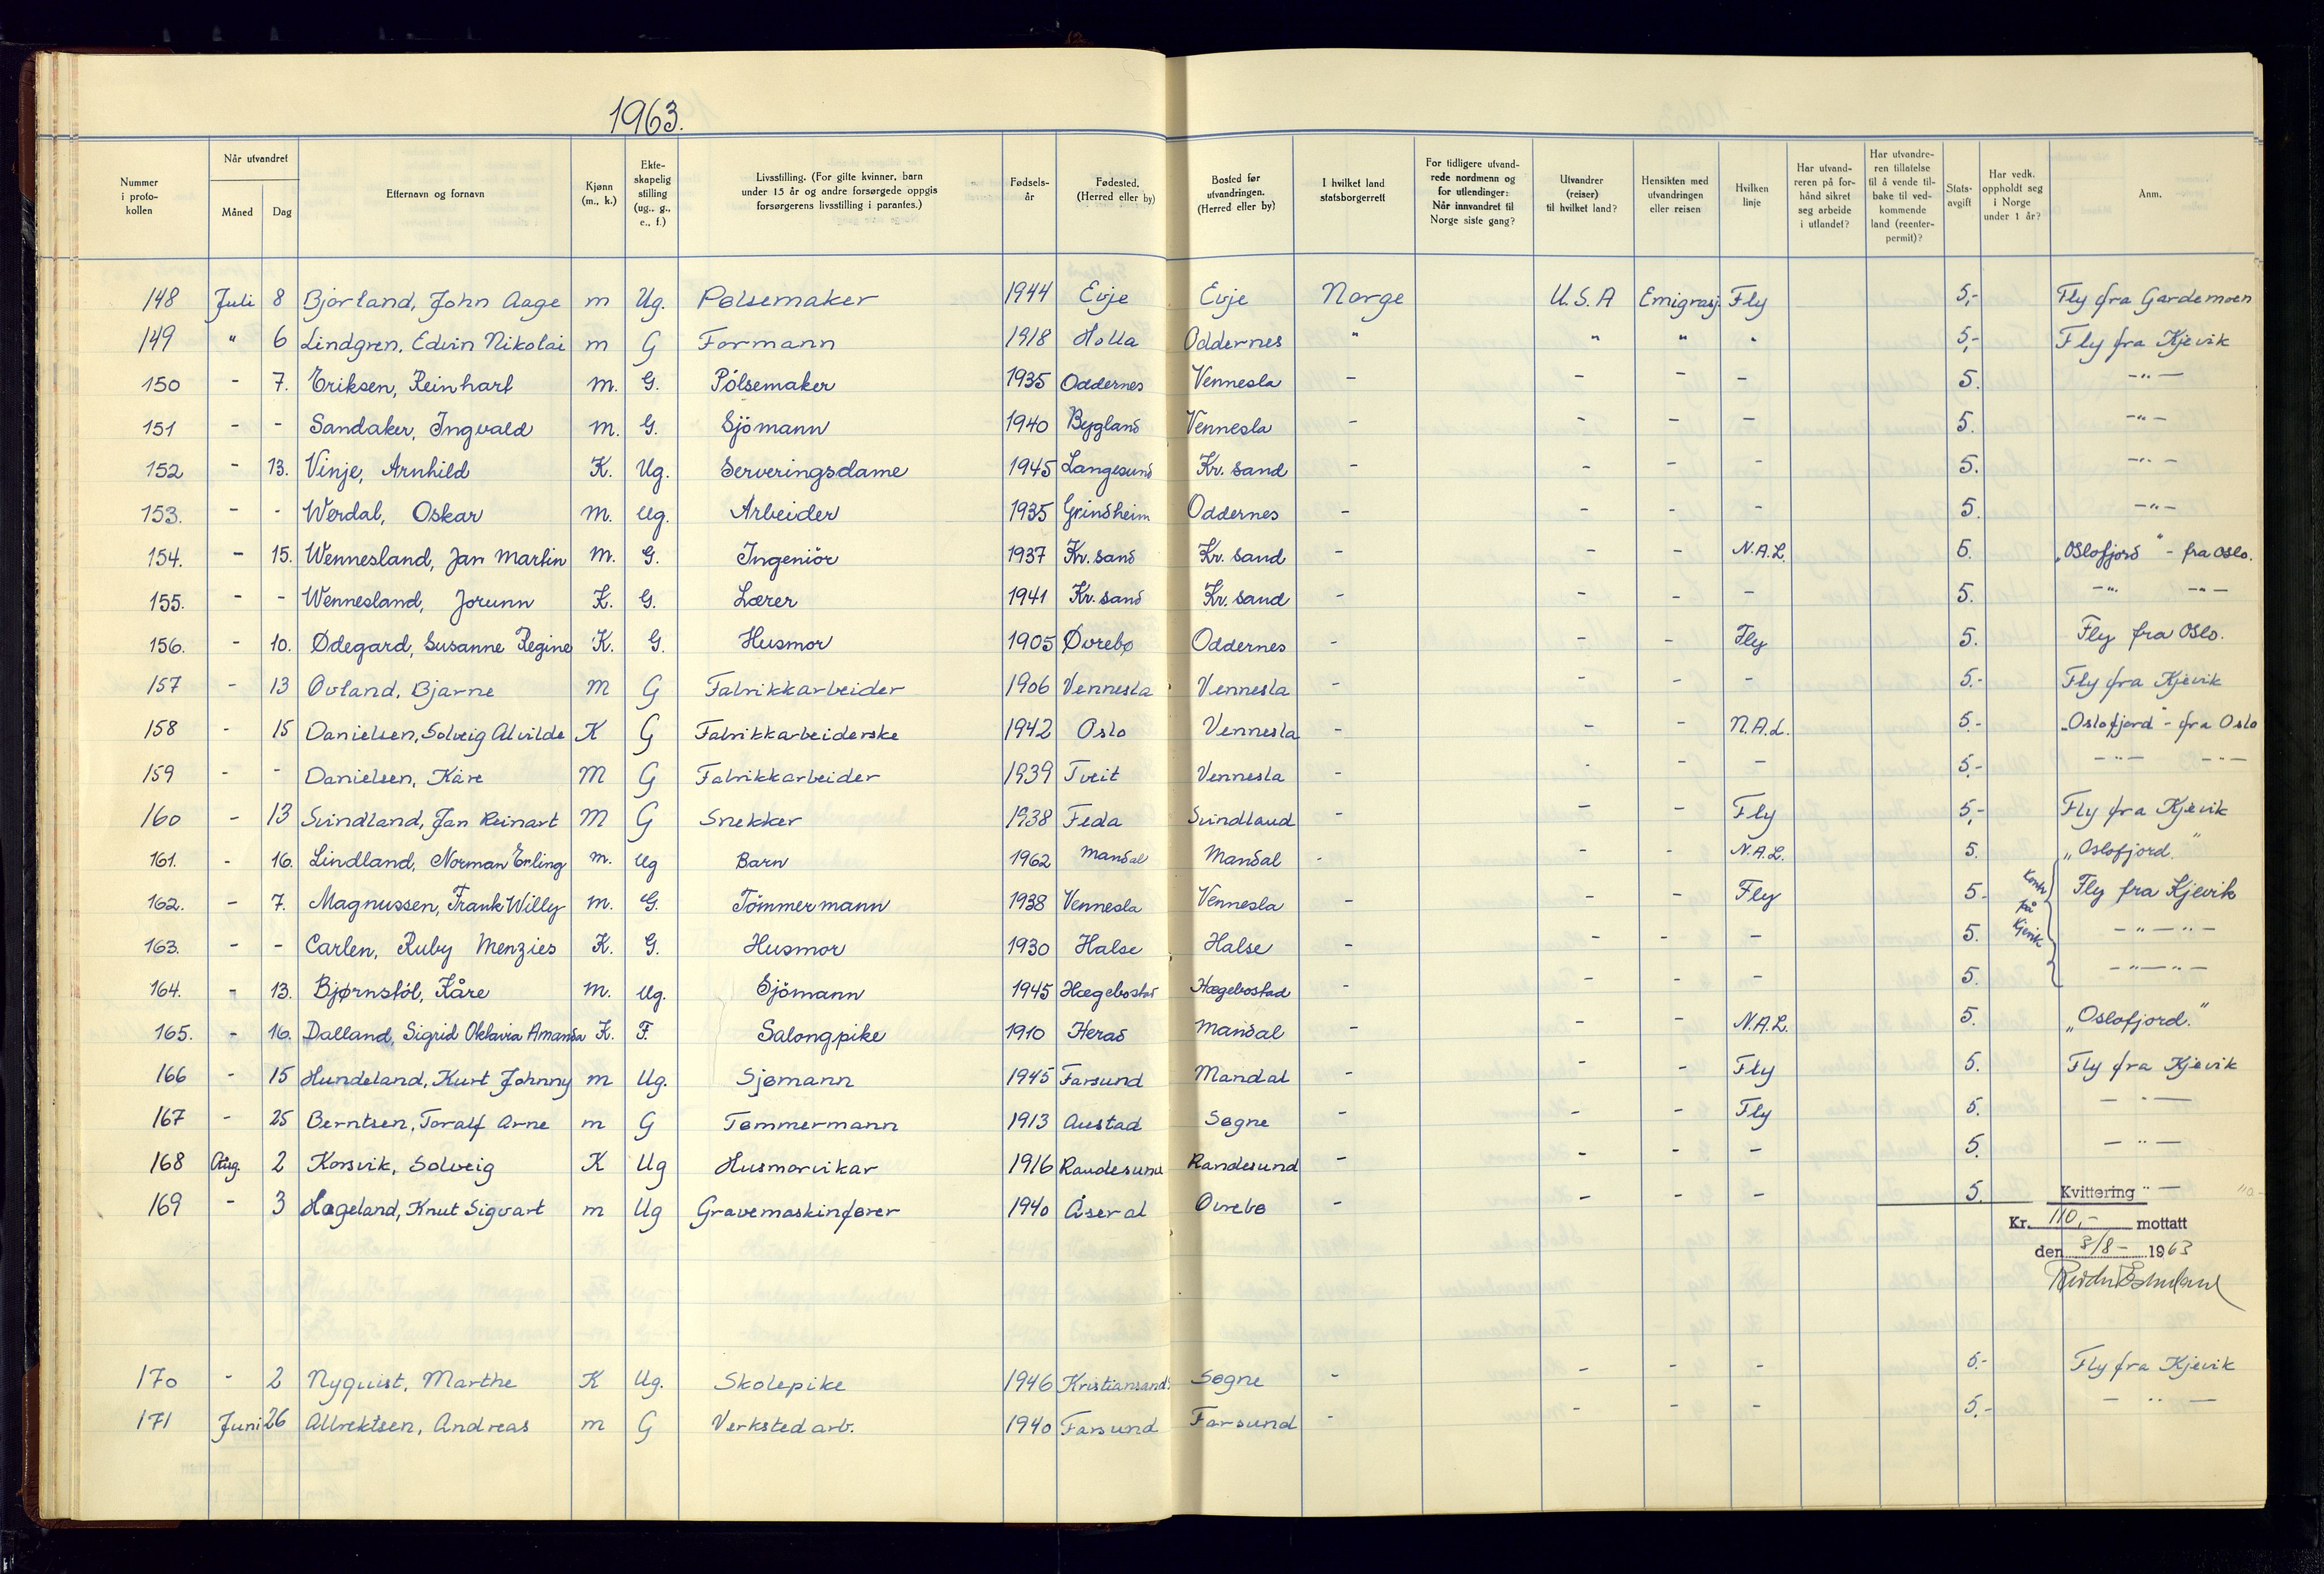 1963.
Nummer i proto-kollen | Når utvandret Måned Dag | Etternavn og fornavn | Kjønn (m., k.) | Ekte-skapelig stilling (ug., g., e., f.) | Livsstilling. (For gifte kvinner, barn under 15 år og andre forsørgede oppgis forsørgerens livsstilling i parantes.) | Fødsels-år | Fødested. (Herred eller by) | Bosted før utvandringen. (Herred eller by) | I hvilket land statsborgerrett | For tidligere utvand-rede nordmenn og for utlendinger: Når innvandret til Norge siste gang? | Utvandrer (reiser) til hvilket land? | Hensikten med utvandringen eller reisen | Hvilken linje | Har utvand-reren på for-hånd sikret seg arbeide i utlandet? | Har utvandre-ren tillatelse til å vende til-bake til ved-kommende land (reenter-permit)? | Stats-avgift | Har vedk. oppholdt seg i Norge under 1 år? | Anm.
148 Juli 8 Bjorland, John Aage m Ug. Pølsemaker 1944 Evje Evje Norge U.S.A Emigrasj Fly 5,- Fly fra Gardemoen
149 " 6 Lindgren, Edvin Nikolai m G Formann 1918 Holla Oddernes " " " " 5,- Fly fra Kjevik
150 - 7. Eriksen, Reinhart m. G. Pölsemaker 1935 Oddernes Vennesla - - - - 5. -"-
151 - - Sandaker, Ingvald m. G. Sjömann 1940 Bygland Vennesla - - - - 5. -"-
152 - 13. Vinje, Arnhild K. Ug. Serveringsdame 1945 Langesund Kr. sand - - - - 5. -"-
153. - - Werdal, Oskar m. Ug. Arbeider 1935 Grindheim Oddernes - - - - 5. -"-
154. - 15. Wennesland, Jan Martin m. G. Ingeniör 1937 Kr. sand Kr. sand - - - N.A.L. 5. "Oslofjord" - fra Oslo.
155. - - Wennesland, Jorunn K. G. Lærer 1941 Kr. sand Kr. sand - - - - 5. -"- -"-
156. - 10. Ødegard, Susanne Regine K. G. Husmor 1905 Øvrebø Oddernes - - - Fly 5. Fly fra Oslo.
157 - 13 Ovland, Bjarne M G Fabrikkarbeider 1906 Vennesla Vennesla - - - - 5.- Fly fra Kjevik
158 - 15 Danielsen, Solveig Alvilde K G Fabrikkarbeiderske 1942 Oslo Vennesla - - - N.A.L. 5.- "Oslofjord" - fra Oslo
159 - - Danielsen, Kåre M G Fabrikkarbeider 1939 Tveit Vennesla - - - - 5,- -"- -"-
160 - 13 Svindland, Jan Reinart M G Snekker 1938 Feda Svindland - - - Fly 5,- Fly fra Kjevik
161. - 16. Lindland, Norman Erling m. Ug Barn 1962 Mandal Mandal - - - N.A.L. 5. "Oslofjord."
162. - 7. Magnussen, Frank Willy m. G. Tömmermann 1938 Vennesla Vennesla - - - Fly 5- Fly fra Kjevik
163. - - Carlen, Ruby Menzies K. G. Husmor 1930 Halse Halse - - - - 5. på Kjevik -"-"-
164. - 13. Bjørnstöl, Kåre m. Ug. Sjömann 1945 Hægebostad Hægebostad - - - - 5. -"-"-
165. - 16. Dalland, Sigrid Oktavia Amanda K. F. Salongpike 1910 Herad Mandal - - - N.A.L. 5. "Oslofjord."
166 - 15 Hundeland, Kurt Johnny m Ug. Sjømann 1945 Farsund Mandal - - - Fly 5. Fly fra Kjevik
167 - 25 Berntsen, Toralf Arne m G Tømmermann 1913 Austad Søgne - - - Fly 5. - " -
168 Aug. 2 Korsvik, Solveig K Ug Husmorvikar 1916 Randesund Randesund - - - - 5. - " -
169 - 3 Hageland, Knut Sigvart m Ug Gravemaskinfører 1940 Åseral Øvrebø - - - - 5. " -
Kvittering
Kr. 110,- mottatt
den 3/8- 1963
170 - 2 Nyquist, Marthe K Ug. Skolepike 1946 Kristiansand Søgne - - - - 5.- Fly fra Kjevik
171 Juni 26 Albrektsen, Andreas m G Verkstedarb. 1940 Farsund Farsund - - - - 5.- - " -